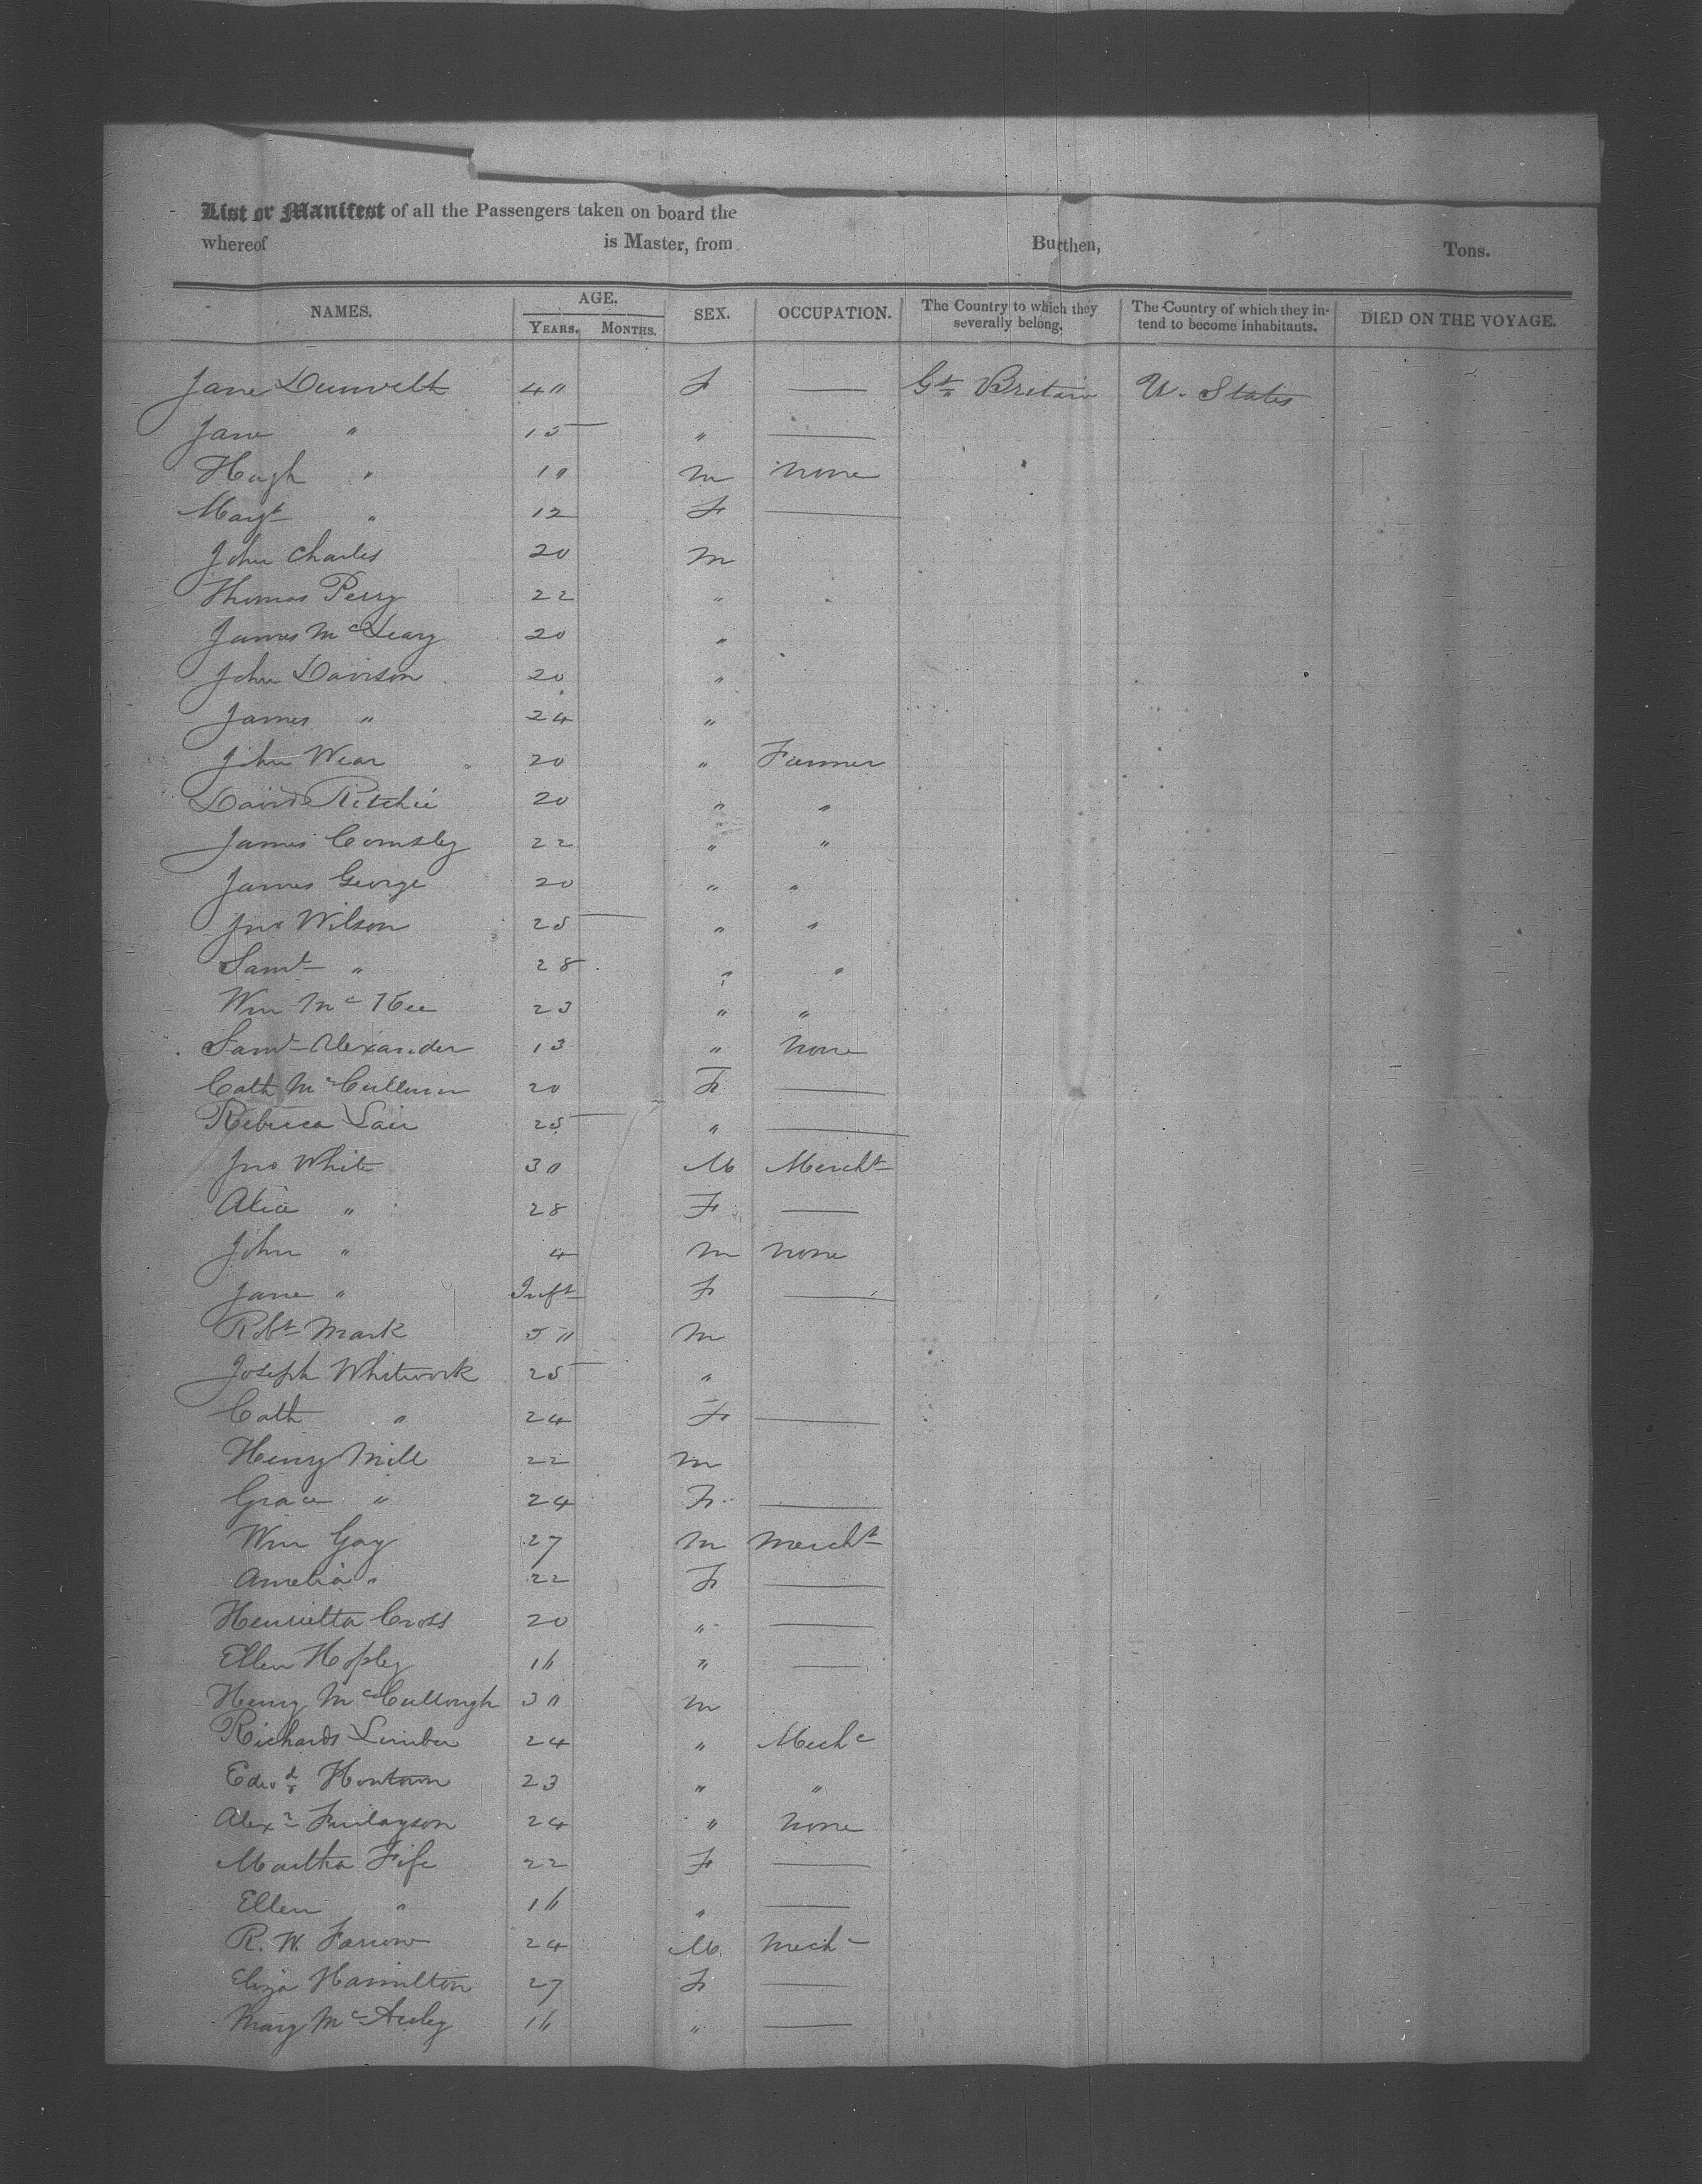 List or Manifest of all the Passengers taken on board the
whereof is Master, from Burthen, Tons.
NAMES. AGE. YEARS. MONTHS. SEX. OCCUPATION. The Country to which they severally belong. The Country of which they intend to become inhabitants. DIED ON THE VOYAGE.
Jane 40 F — Gt Britain U. States
Jane " 15 " —
Hugh " 10 M None
Margt " 12 F —
John Charles 20 M
Thomas Perry 22 "
James McLeary 20 "
John Davison 20 "
James " 24 "
John Wear 20 " Farmer
David Ritchie 20 " "
James 22 " "
James George 20 " "
Jno Wilson 25 " "
Saml " 28 " "
Wm McKee 23 " "
Saml Alexander 13 " None
Cath 20 F —
Rebecca Lair 25 " —
Jno White 30 M Mercht
" 28 F —
John " 4 M None
Jane " Inft F —
Robt Mark 50 M
Joseph Whitwork 25 "
Cath " 24 F —
Henry Mill 22 M
Grace " 24 F —
Wm Gay 27 M Mercht
Amelia " 22 F —
Henrietta Cross 20 " —
Ellen 16 " —
Henry McCullough 30 M
Richard 24 " Mechc
Edwd 23 " "
Alexr Finlayson 24 " None
Martha Fife 22 F —
Ellen " 16 " —
R. W. Farrow 24 M Mechc
Eliza Hamilton 27 F —
Mary McAuley 16 " —